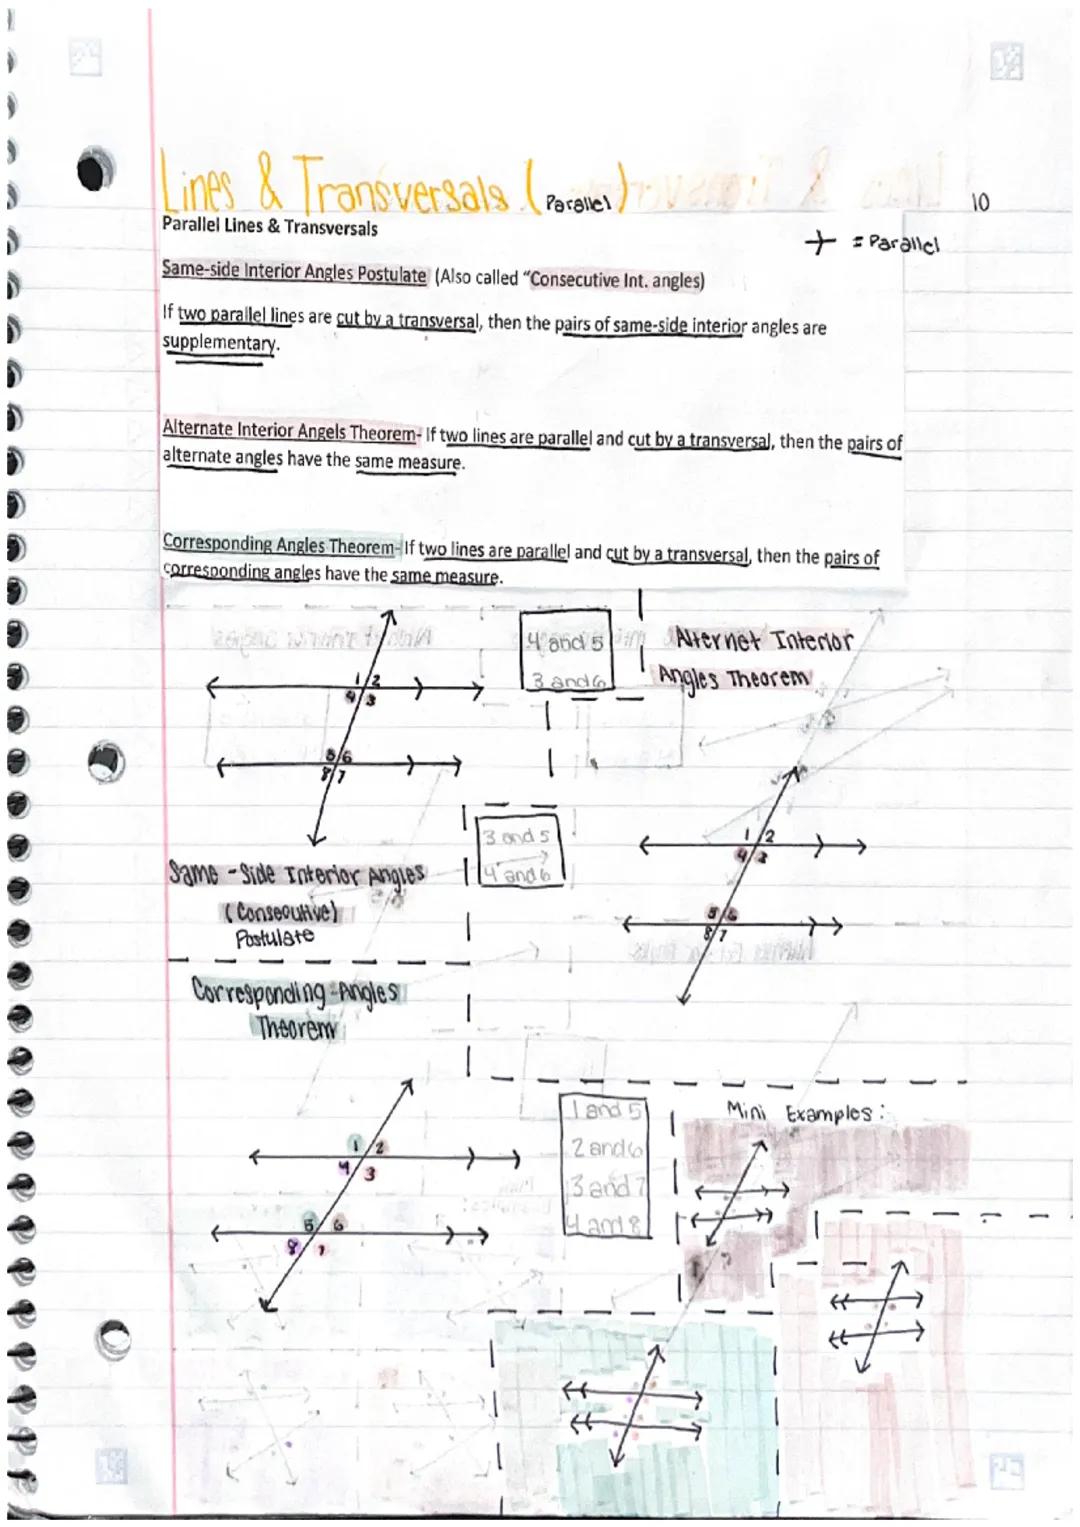 Lines & Transversals (Parallel)
10
Parallel Lines & Transversals
= Parallel
Same-side Interior Angles Postulate (Also called "Consecutive Int. angles)
If two parallel lines are cut by a transversal, then the pairs of same-side interior angles are
supplementary.
Alternate Interior Angels Theorem- If two lines are parallel and cut by a transversal, then the pairs of
alternate angles have the same measure.
Corresponding Angles Theorem- If two lines are parallel and cut by a transversal, then the pairs of
corresponding angles have the same measure.
4 and 5
3 and 6
Alternet Interior
Angles Theorem
1 2
4 3
5 6
8 7
3 and 5
4 and 6
Same-Side Interior Angles
(Consecutive)
Postulate
1 2
4 3
5 6
8 7
Corresponding Angles
Theorem
1 and 5
2 and 6
3 and 7
4 and 8
Mini Examples:
1 2
4 3
5 6
8 7